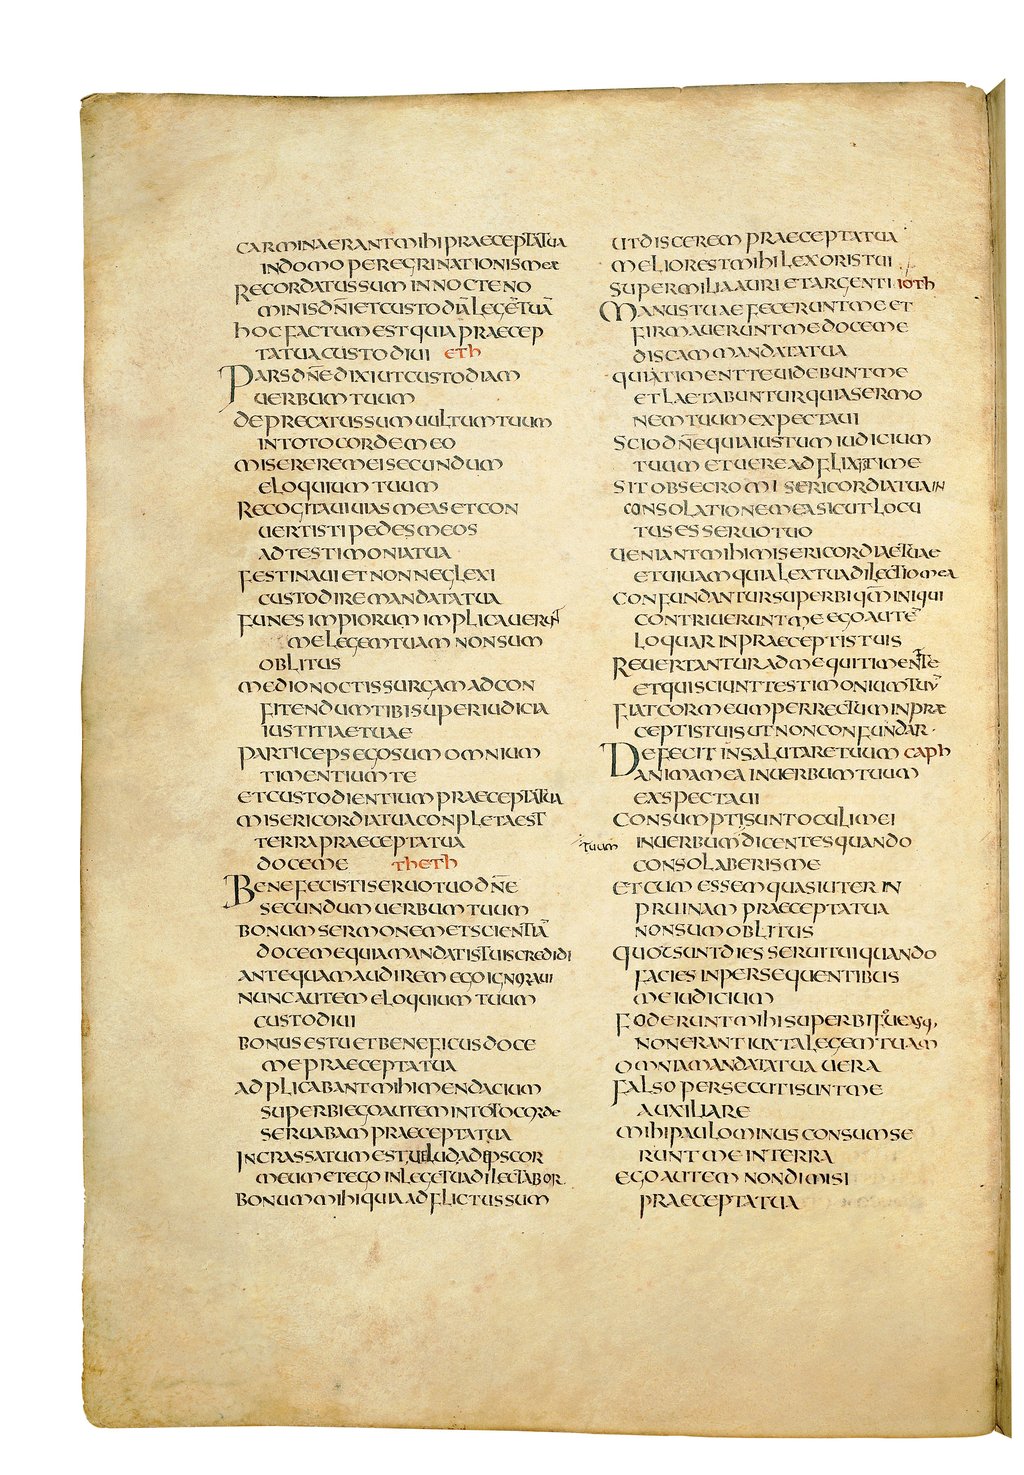 CARMINAERANTMIHIPRAECEPTATUA
INDOMOPEREGRINATIONISMEAE
RECORDATUSSUMINNOCTENO
MINISDN̄IETCUSTODIA̅LEGE̅TUA̅
HOCFACTUMESTQUIAPRAECEP
TATUACUSTODIUI ETH
PARSDN̄EDIXIUTCUSTODIAM
UERBUMTUUM
DEPRECATUSSUMUULTUMTUUM
INTOTOCORDEMEO
MISEREREMEISECUNDUM
ELOQUIUMTUUM
RECOGITAUIUIASMEASETCON
UERTISTIPEDESMEOS
ADTESTIMONIATUA
FESTINAUIETNONNEGLEXI
CUSTODIREMANDATATUA
FUNESIMPIORUMIMPLICAUERUNT
MELEGEMTUAMNONSUM
OBLITUS
MEDIONOCTISSURGAMADCON
FITENDUMTIBISUPERIUDICIA
IUSTITIAETUAE
PARTICEPSEGOSUMOMNIUM
TIMENTIUMTE
ETCUSTODIENTIUMPRAECEPTATUA
MISERICORDIATUACONPLETAEST
TERRAPRAECEPTATUA
DOCEME THETH
BENEFECISTISERUOTUODN̄E
SECUNDUMUERBUMTUUM
BONUMSERMONEMETSCIENTIA̅
DOCEMEQUIAMANDATISTUISCREDIDI
ANTEQUAMAUDIREMEGOIGNORAUI
NUNCAUTEMELOQUIUMTUUM
CUSTODIUI
BONUSESTUETBENEFICUSDOCE
MEPRAECEPTATUA
ADPLICABANTMIHIMENDACIUM
SUPERBIEGOAUTEMINTOTOCORDE
SERUABAMPRAECEPTATUA
INCRASSATUMESTUELUDADIPSCOR
MEUMETEGOINLEGETUADILECTABOR
BONUMMIHIQUIAADFLICTUSSUM
UTDISCEREMPRAECEPTATUA
MELIORESTMIHILEXORISTUI
SUPERMILIAAURIETARGENTI IOTH
MANUSTUAEFECERUNTMEET
FIRMAUERUNTMEDOCEME
DISCAMMANDATATUA
QUIATIMENTTEUIDEBUNTME
ETLAETABUNTURQUIASERMO
NEMTUUMEXPECTAUI
SCIODN̄EQUIAIUSTUMIUDICIUM
TUUMETUEREADFLIXISTIME
SITOBSECROMISERICORDIATUAIN
CONSOLATIONEMEASICUTLOCU
TUSESSERUOTUO
UENIANTMIHIMISERICORDIAETUAE
ETUIUAMQUIALEXTUADILECTIOMEA
CONFUNDANTURSUPERBIQM̅INIQUI
CONTRIUERUNTMEEGOAUTE̅
LOQUARINPRAECEPTISTUIS
REUERTANTURADMEQUITIMENTTE
ETQUISCIUNTTESTIMONIUMTUU̅
FIATCORMEUMPERRECTUMINPRAE
CEPTISTUISUTNONCONFUNDAR·
DEFECITINSALUTARETUUM CAPH
ANIMAMEAINUERBUMTUUM
EXSPECTAUI
CONSUMPTISUNTOCULIMEI
TUUM INUERBUMDICENTESQUANDO
CONSOLABERISME
ETCUMESSEMQUASIUTERIN
PRUINAMPRAECEPTATUA
NONSUMOBLITUS
QUOTSUNTDIESSERUITUIQUANDO
FACIESINPERSEQUENTIBUS
MEIUDICIUM
FODERUNTMIHISUPERBI
NONERANTIUXTALEGEMTUAM
OMNIAMANDATATUAUERA
FALSOPERSECUTISUNTME
AUXILIARE
MIHIPAULOMINUSCONSUMSE
RUNTMEINTERRA
EGOAUTEMNONDIMISI
PRAECEPTATUA